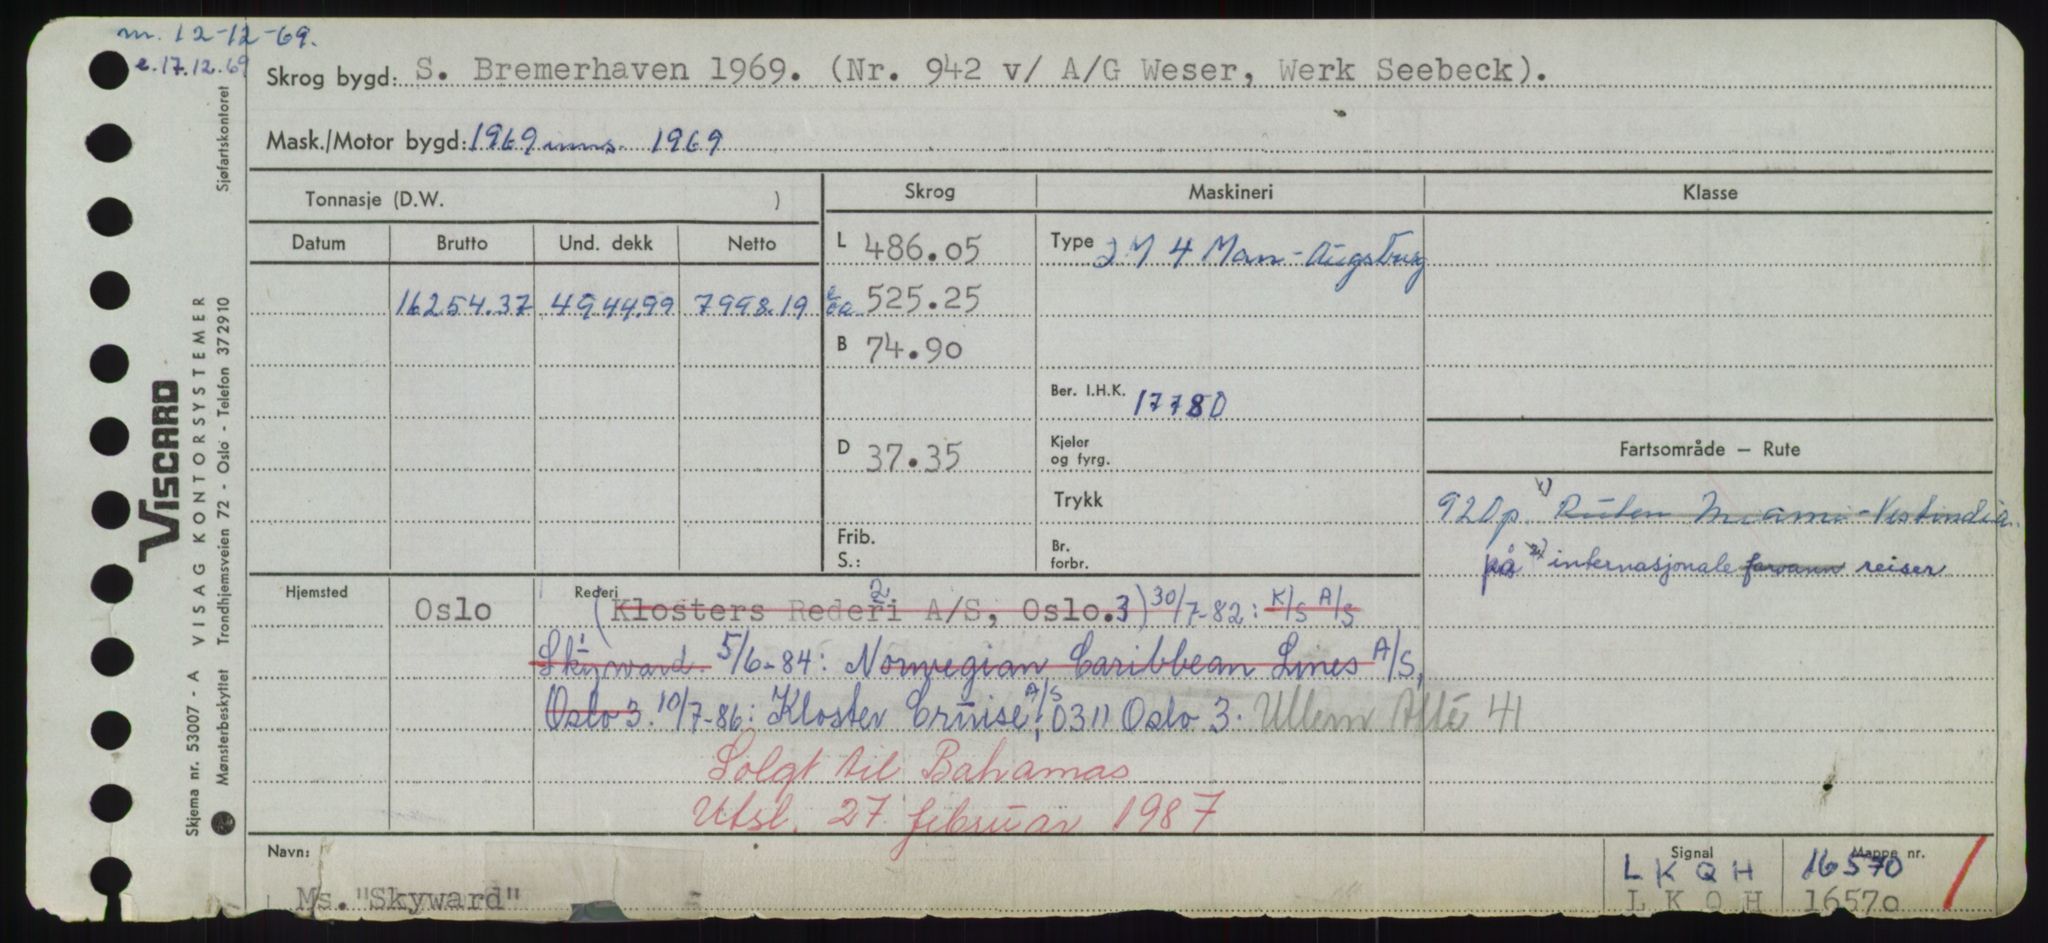 m. 12-12-69.
e. 17.12.69
Skrog bygd: S. Bremerhaven 1969. (Nr. 942 v/ A/G Weser, Werk Seebeck).
Mask./Motor bygd: 1969 inns. 1969
Tonnasje (D.W. )
Skrog Maskineri Klasse
Datum Brutto Und. dekk Netto
L 486.05
Type 2 M 4 Man-Augsburg
16254.37 4944.99 7998.19
525.25
B 74.90
Ber. I.H.K. 17780
D 37.35
Kjeler
og fyrg.
Trykk
Frib.
S.:
Br.
forbr.
Fartsområde — Rute
920 p. 1) Ruten Miami-Vestindia.
på 2) internasjonale farvann reiser
Hjemsted Oslo
Rederi (Klosters Rederi A/S, Oslo. 2 3) 30/7-82: K/S A/S
Skyward 5/6-84: Norwegian Caribbean Lines A/S,
Oslo 3. 10/7-86: Kloster Cruise A/S, 0311 Oslo 3. Ullern Allé 41
Solgt til Bahamas
Utsl. 27 februar 1987
Navn: Ms. "Skyward"
Signal Mappe nr.
L K Q H 16570
L K Q H 16570
Sjøfartskontoret
VISCARD
VISAG KONTORSYSTEMER
Trondhjemsveien 72 - Oslo - Telefon 372910
Skjema nr. 53007 - A
Mønsterbeskyttet